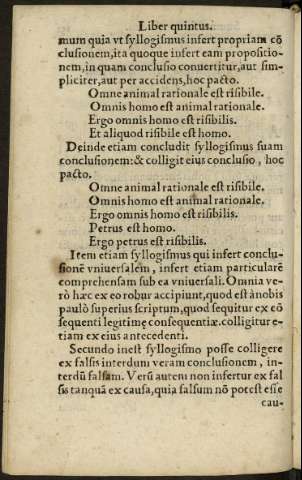 Liber quintus.
mum quia vt syllogismus infert propriam cō
clusionem, ita quoque infert eam propositio-
nem, in quam conclusio conuertitur, aut sim-
pliciter, aut per accidens, hoc pacto.
Omne animal rationale est risibile.
Omnis homo est animal rationale.
Ergo omnis homo est risibilis.
Et aliquod risibile est homo.
Deinde etiam concludit syllogismus suam
conclusionem: & colligit eius conclusio, hoc
pacto.
Omne animal rationale est risibile.
Omnis homo est animal rationale.
Ergo omnis homo est risibilis.
Petrus est homo.
Ergo petrus est risibilis.
Item etiam syllogismus qui infert conclu-
sionē vniuersalem, infert etiam particularē
comprehensam sub ea vniuersali. Omnia ve-
rò hæc ex eo robur accipiunt, quod est à nobis
paulò superius scriptum, quod sequitur ex cō
sequenti legitimę consequentiæ, colligitur e-
tiam ex eius antecedenti.
Secundo inest syllogismo posse colligere
ex falsis interdum veram conclusionem, in-
terdū falsam. Verū autem non infertur ex fal
sis tanquā ex causa, quia falsum nō potest esse
cau-